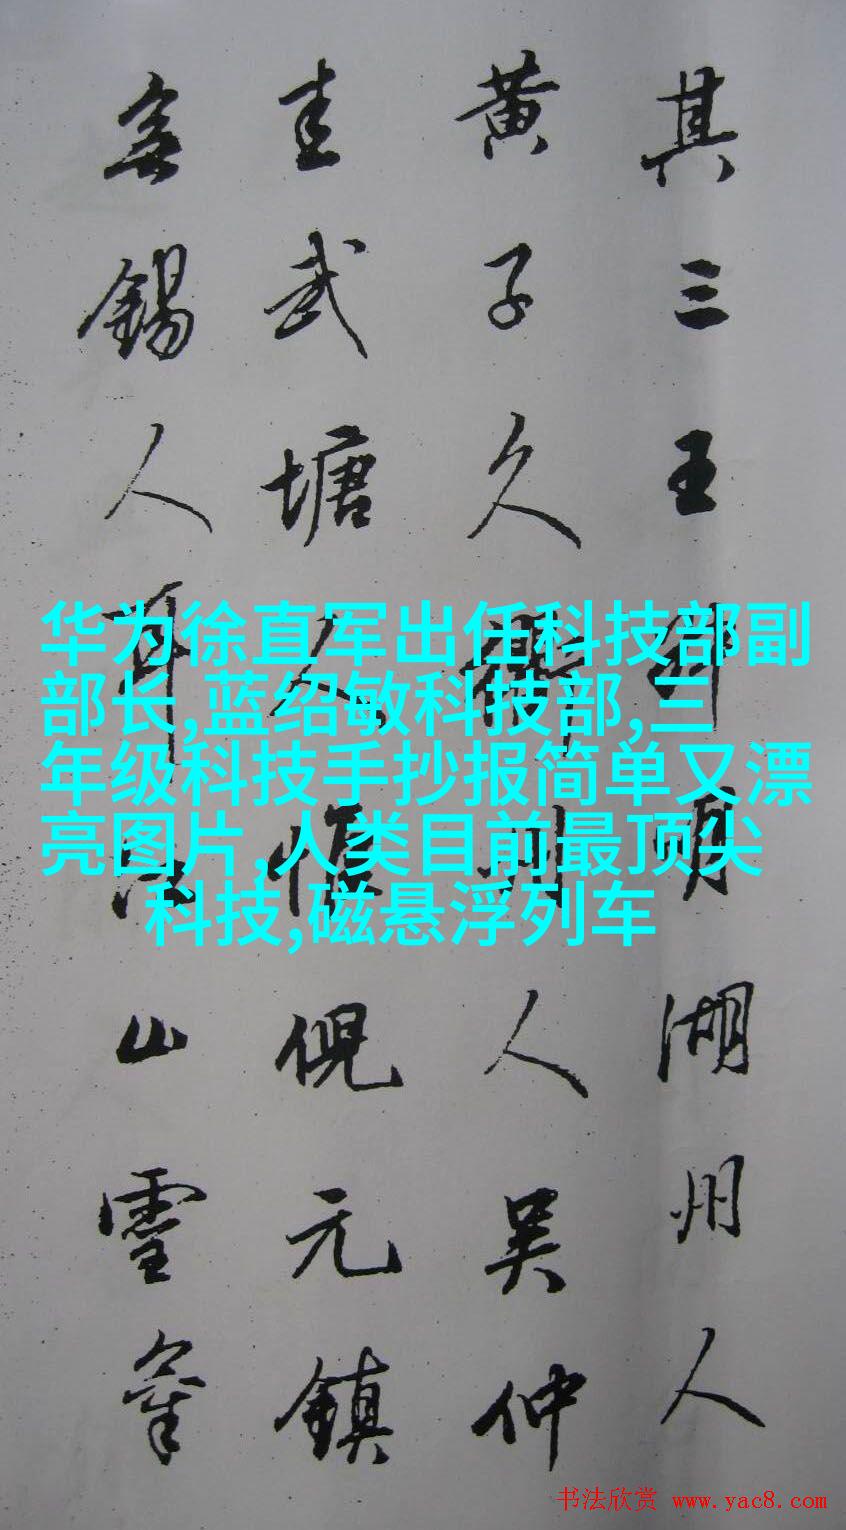 其三王叔明湖州人
黄子久衢州人吴仲
圭武塘人惟倪元镇
无锡人耳江山灵气
华为徐直军出任科技部副
部长,蓝绍敏科技部,三
年级科技手抄报简单又漂
亮图片,人类目前最顶尖
科技,磁悬浮列车
书法欣赏 www.yac8.com